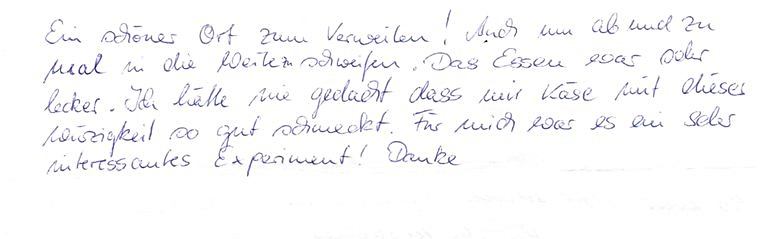 Ein schöner Ort zum Verweilen! Auch um ab und zu
mal in die Weite zu schweifen. Das Essen war sehr
lecker. Ich hätte nie gedacht dass mir Käse mit dieser
Würzigkeit so gut schmeckt. Für mich war es ein sehr
interessantes Experiment! Danke